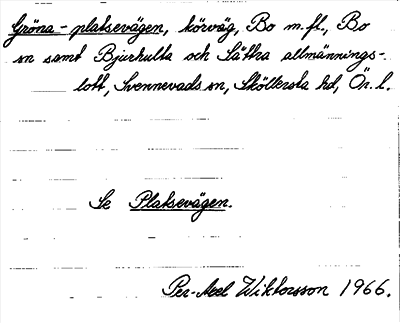 Gröna-platsevägen, körväg, Bo m.fl., Bo
sn samt Bjurhulta och Sättra allmännings-
lott, Svennevads sn, Sköllersta hd, Ör. l.
Se Platsevägen.
Per-Axel Wiktorsson 1966.